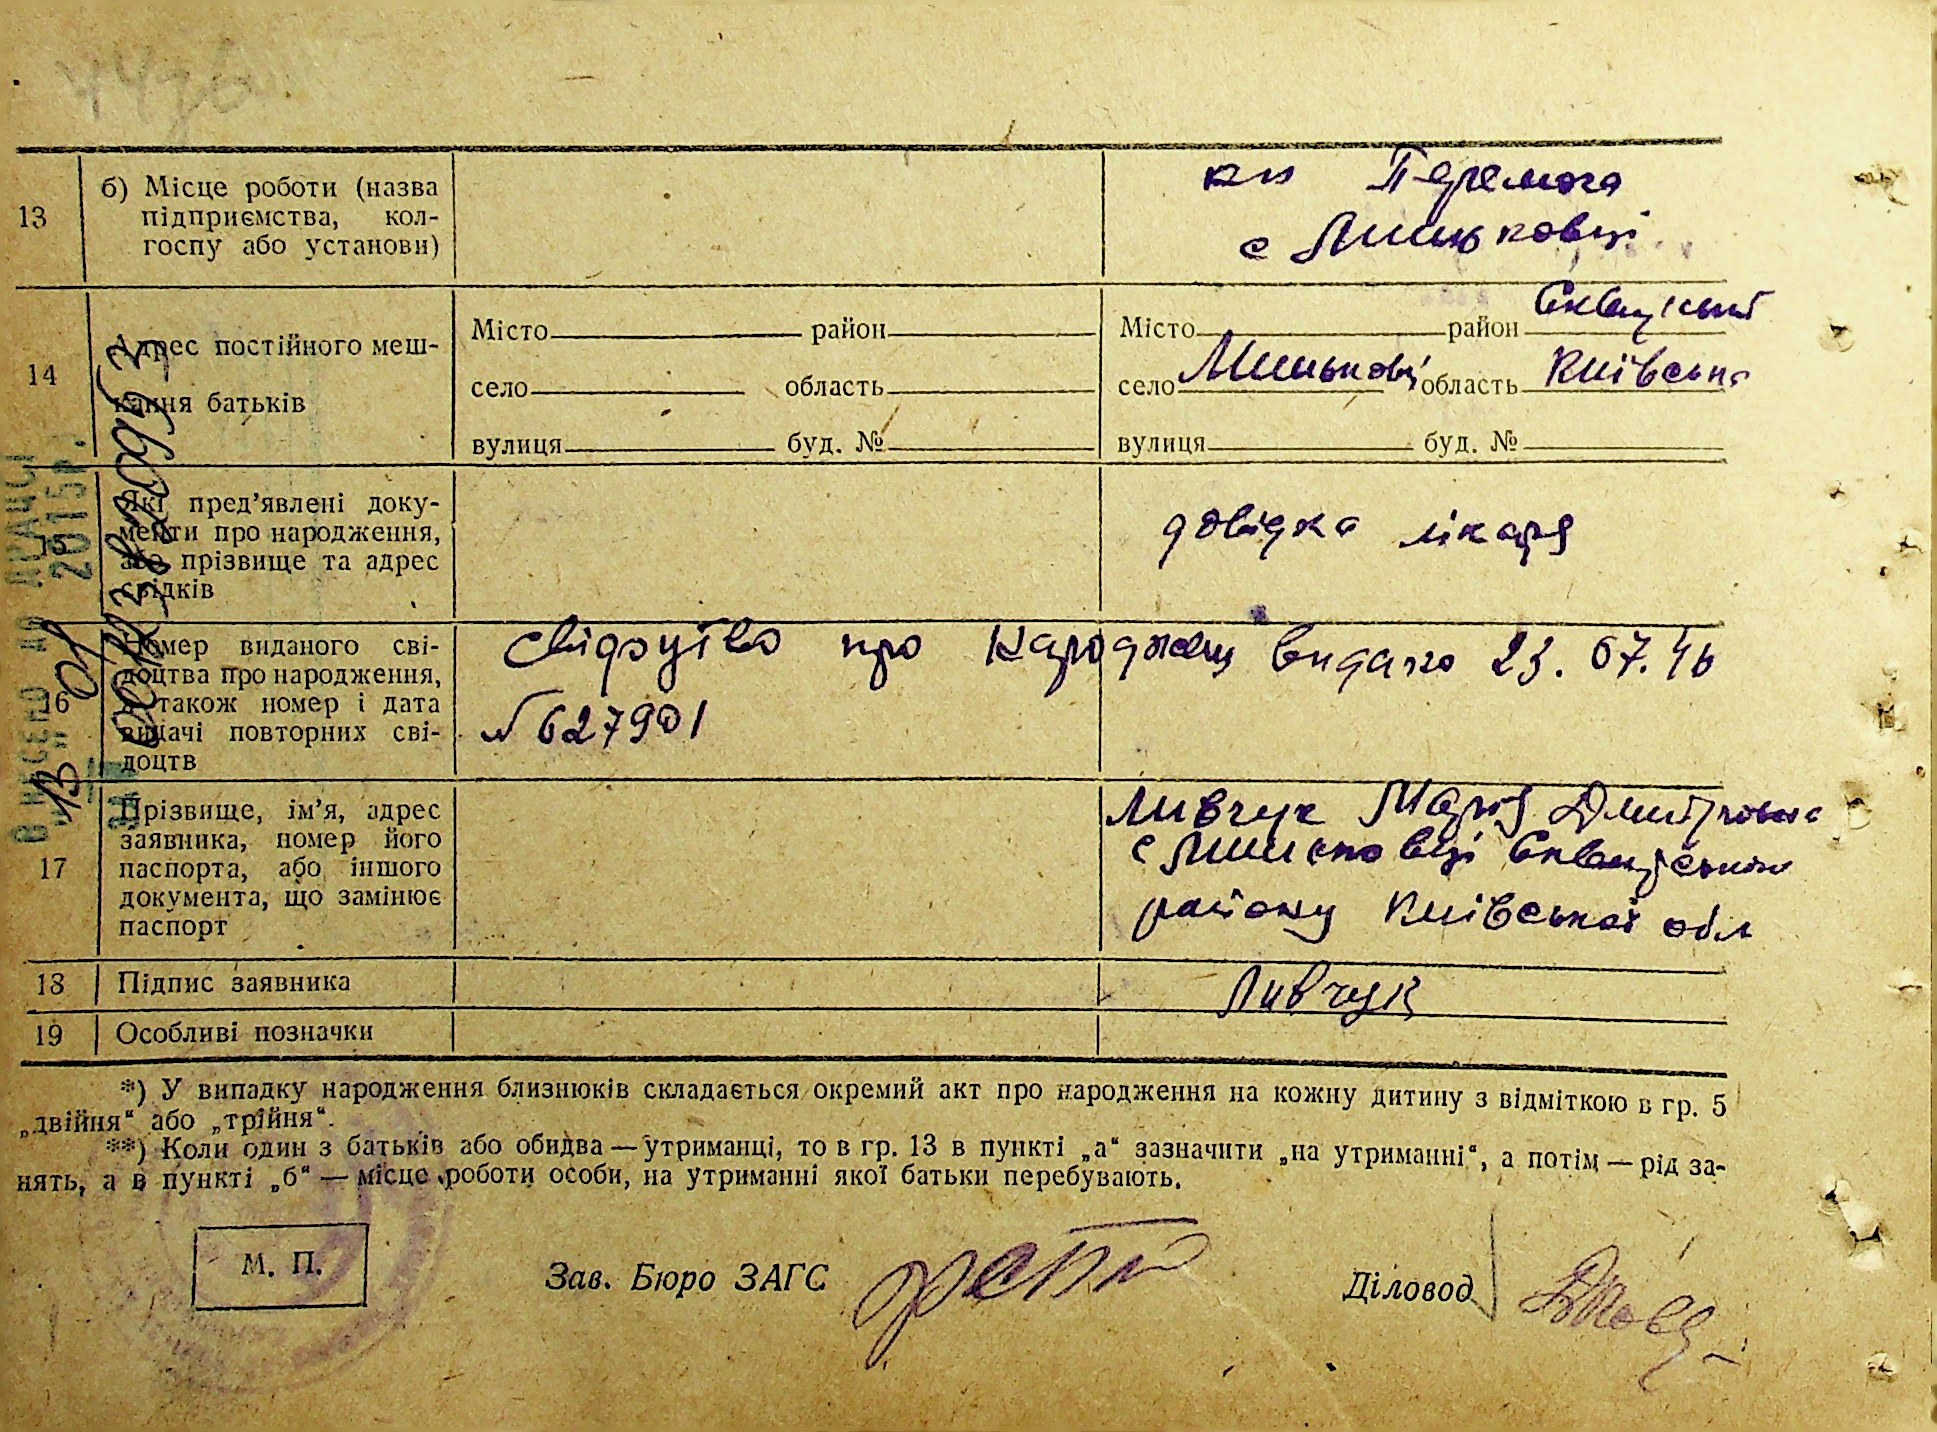 13
б) Місце роботи (назва
підприємства, кол-
госпу або установи)
кп Перемога
с Линьковці
14
Адрес постійного меш-
кання батьків
Місто район
село область
вулиця буд. №
Місто район Сквирський
село Линьковці область Київська
вулиця буд. №
15
Які пред’явлені доку-
менти про народження,
або прізвище та адрес
свідків
довідка лікаря
16
Номер виданого сві-
доцтва про народження,
а також номер і дата
видачі повторних сві-
доцтв
Свідоцтво про народжен видано 23.07.46
№ 627901
17
Прізвище, ім’я, адрес
заявника, номер його
паспорта, або іншого
документа, що замінює
паспорт
Ливчук Марія Дмитровна
с Сквирського
району Київської обл
18
Підпис заявника
Ливчук
19
Особливі позначки
*) У випадку народження близнюків складається окремий акт про народження на кожну дитину з відміткою в гр. 5
„двійня“ або „трійня“.
**) Коли один з батьків або обидва — утриманці, то в гр. 13 в пункті „а“ зазначити „на утриманні“, а потім — рід за-
нять, а в пункті „б“ — місце роботи особи, на утриманні якої батьки перебувають.
М. П.
Зав. Бюро ЗАГС
Діловод
2015р.